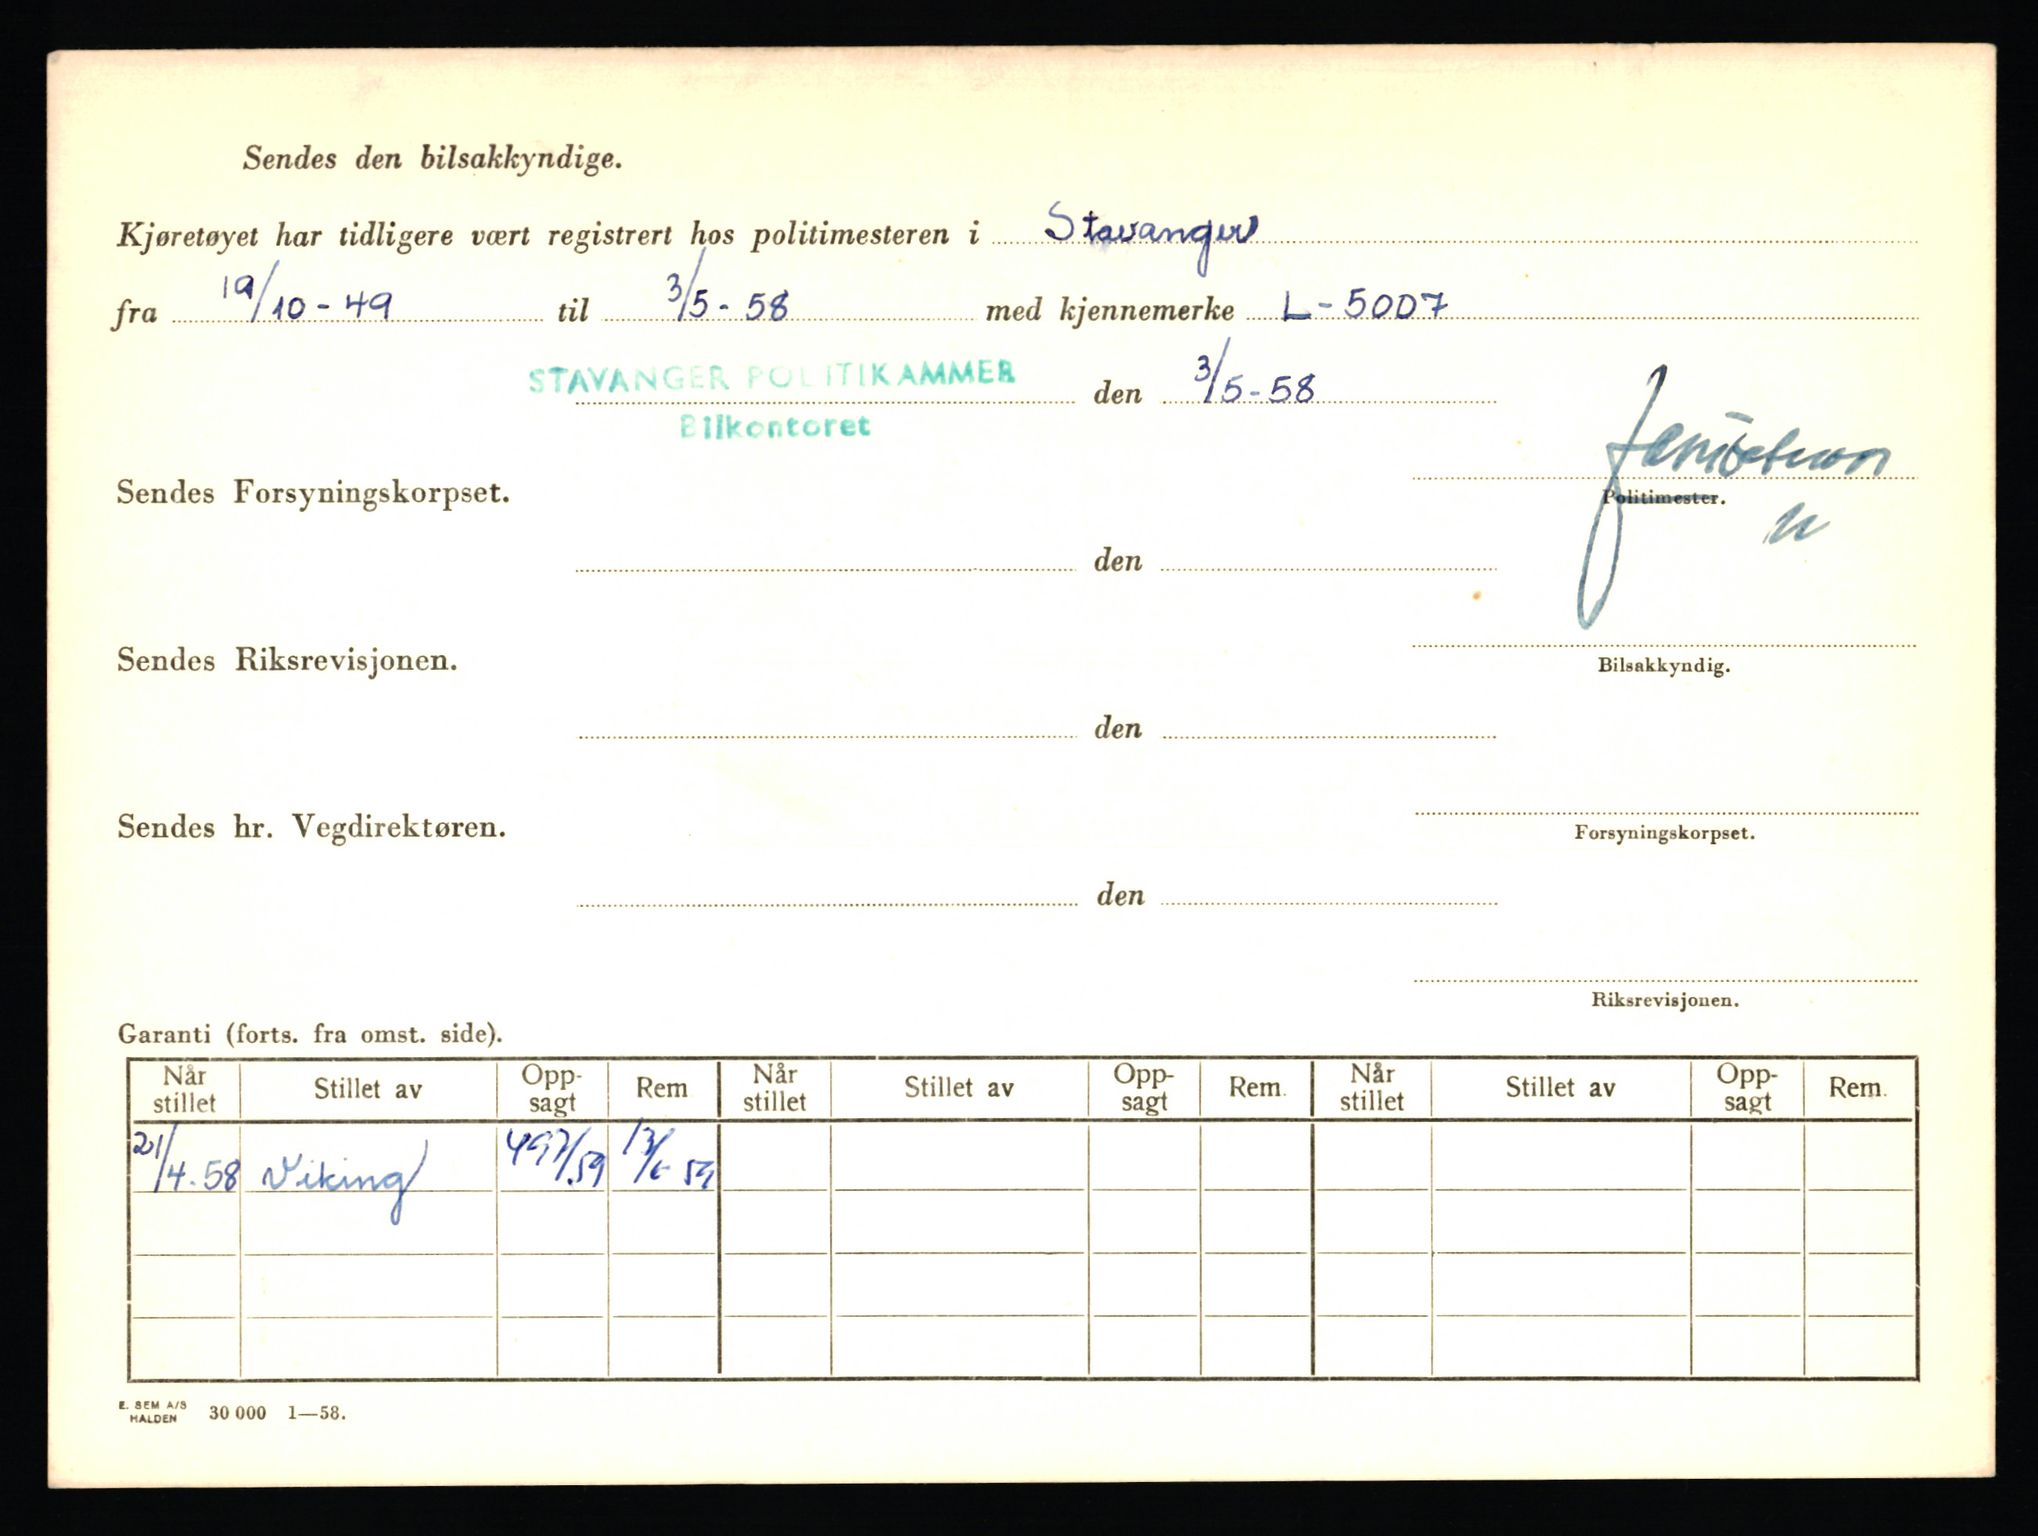 Sendes den bilsakkyndige.
Kjøretøyet har tidligere vært registrert hos politimesteren i Stavanger
fra 19/10-49 til 3/5-58 med kjennemerke L-5007
STAVANGER POLITIKAMMER den 3/5-58
Bilkontoret
Sendes Forsyningskorpset. Politimester.
den
Sendes Riksrevisjonen. Bilsakkyndig.
den
Sendes hr. Vegdirektøren. Forsyningskorpset.
den
Riksrevisjonen.
Garanti (forts. fra omst. side).
Når stillet Stillet av Opp-sagt Rem Når stillet Stillet av Opp-sagt Rem. Når stillet Stillet av Opp-sagt Rem.
21/4-58 Viking 497/59
E. SEM A/S
HALDEN 30 000 1—58.